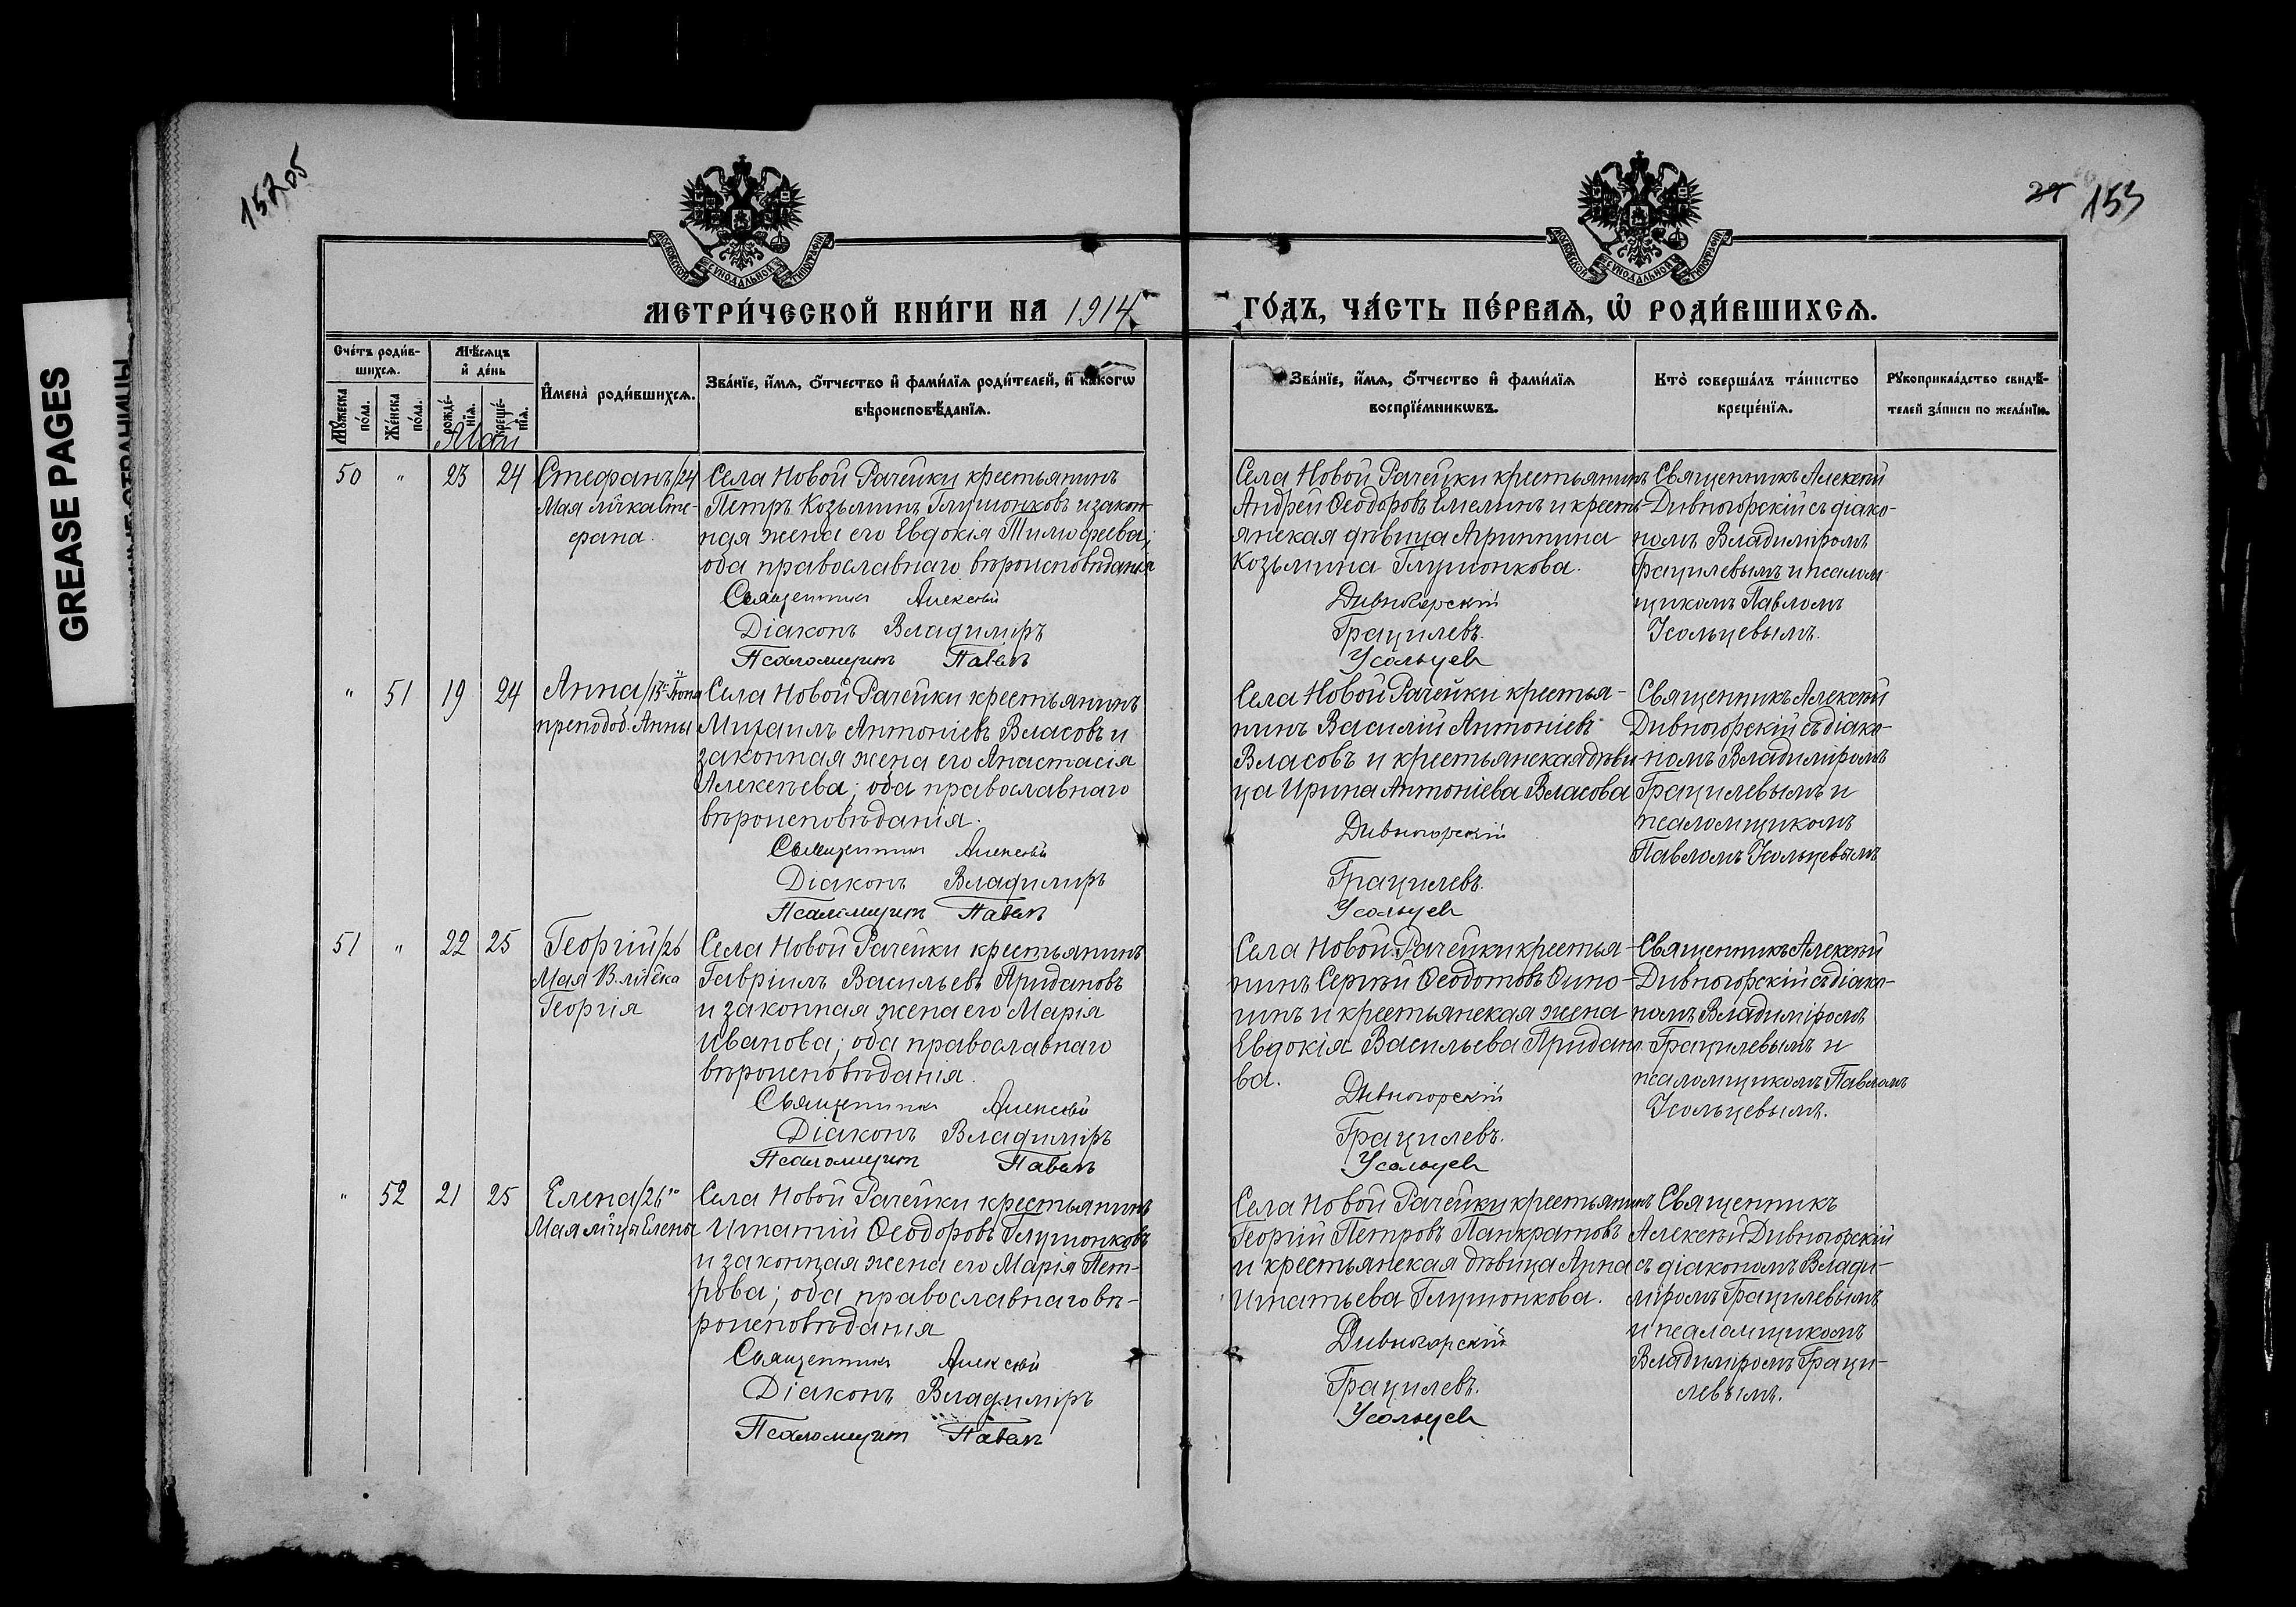 GREASE PAGES
153
МОСКОВСКОЙ СѴНОДАЛЬНОЙ ТИПОГРАФІИ
МОСКОВСКОЙ СѴНОДАЛЬНОЙ ТИПОГРАФІИ
МЕТРИ́ЧЕСКОЙ КНИ́ГИ НА 1914
ГО́ДЪ, ЧА́СТЬ ПЕ́РВАЯ, Ѡ РОДИ́ВШИХСЯ.
Сче́тъ роди́в-
шихся.
Мѣ́сяцъ
и де́нь
Му́жеска по́ла.
Же́нска по́ла.
рожде́-
нія.
креще́-
нія.
Май
Имена̀ роди́вшихся.
Зва́ніе, и́мя, о́тчество и фами́лія роди́телей, и како́гѡ
вѣроисповѣ́данія.
Зва́ніе, и́мя, о́тчество и фами́лія
воспріе́мникѡвъ.
Кто̀ соверша́лъ та́инство
креще́нія.
Рукоприкла́дство свидѣ́-
телей за́писи по жела́нію.
50 " 23 24 Стефанъ/24
Мая м̃ч̃ка Сте-
фана.
Села Новой Рачейки крестьянинъ
Петръ Козьминъ Глушонковъ и закон-
ная жена его Евдокія Тимофеева;
оба православнаго вѣроисповѣданія
Священникъ Алексѣй
Діаконъ Владиміръ
Псаломщикъ Павелъ
Села Новой Рачейки крестьянинъ
Андрей Ѳеодоровъ Емелинъ и кресть-
янская дѣвица Агриппина
Козьмина Глушонкова.
Дивногорскій
Грацилевъ.
Усольцевъ
Священникъ Алексѣй
Дивногорскій съ діако-
номъ Владиміромъ
Грацилевымъ и псалом-
щикомъ Павломъ
Усольцевымъ.
" 51 19 24 Анна/13 Іюня
преподоб. Анны
Села Новой Рачейки крестьянинъ
Михаилъ Антоніевъ Власовъ и
законная жена его Анастасія
Алексѣева; оба православнаго
вѣроисповѣданія.
Священникъ Алексѣй
Діаконъ Владиміръ
Псаломщикъ Павелъ
Села Новой Рачейки крестья-
нинъ Василій Антоніевъ
Власовъ и крестьянская дѣви-
ца Ирина Антоніева Власова
Дивногорскій
Грацилевъ.
Усольцевъ
Священникъ Алексѣй
Дивногорскій съ діако-
номъ Владиміромъ
Грацилевымъ и
псаломщикомъ
Павломъ Усольцевымъ
51 " 22 25 Георгій/26
Мая
Георгія
Села Новой Рачейки крестьянинъ
Гавріилъ Васильевъ Придановъ
и законная жена его Марія
Иванова; оба православнаго
вѣроисповѣданія.
Священникъ Алексѣй
Діаконъ Владиміръ
Псаломщикъ Павелъ
Села Новой Рачейки крестья-
нинъ Сергѣй Ѳеодотовъ
и крестьянская жена
Евдокія Васильева Придано-
ва.
Дивногорскій
Грацилевъ.
Усольцевъ
Священникъ Алексѣй
Дивногорскій съ діако-
номъ Владиміромъ
Грацилевымъ и
псаломщикомъ Павломъ
Усольцевымъ.
" 52 21 25 Елена/26го
Мая м̃ч̃цы Елены
Села Новой Рачейки крестьянинъ
Игнатій Ѳеодоровъ Глушонковъ
и законная жена его Марія Пет-
рова; оба православнаго вѣ-
роисповѣданія
Священникъ Алексѣй
Діаконъ Владиміръ
Псаломщикъ Павелъ
Села Новой Рачейки крестьянинъ
Георгій Петровъ Панкратовъ
и крестьянская дѣвица Анна
Игнатьева Глушонкова.
Дивногорскій
Грацилевъ.
Усольцевъ
Священникъ
Алексѣй Дивногорскій
съ діакономъ Влади-
міромъ Грацилевымъ
и псаломщикомъ
Владиміромъ Граци-
левымъ.